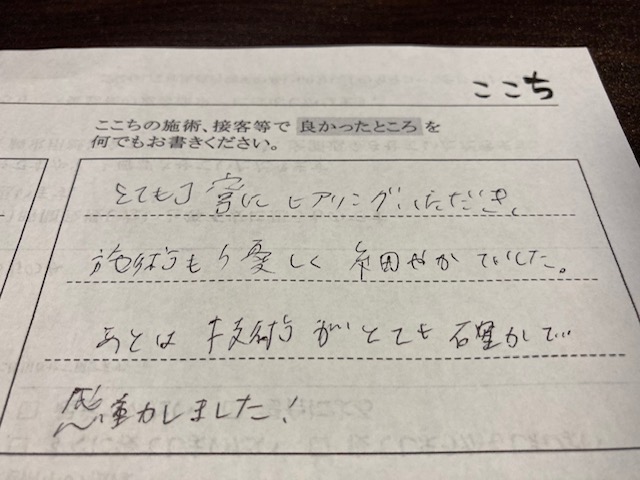 ここち
ここちの施術、接客等で 良かったところ を
何でもお書きください。
とても丁寧に ヒアリングいただき、
施術も優しく 細やかでした。
あとは 技術がとても 確かで
感動しました!